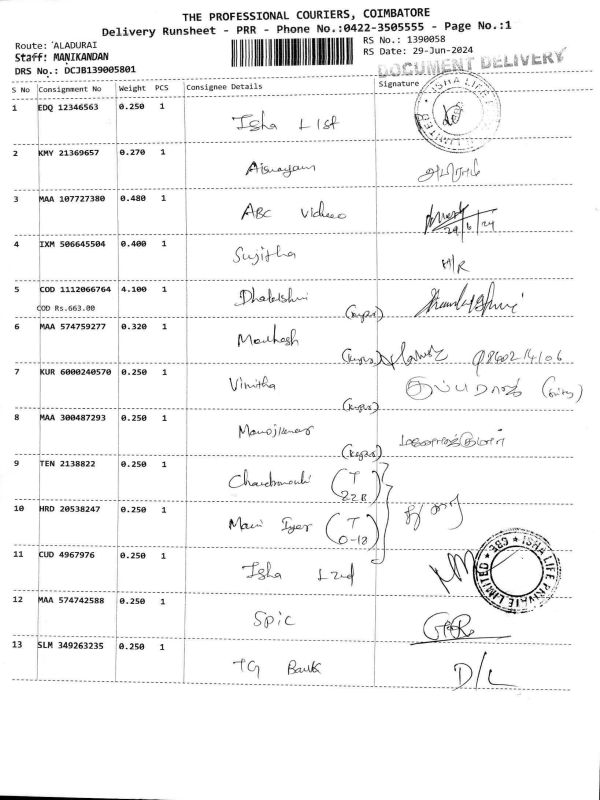 THE PROFESSIONAL COURIERS, COIMBATORE
Delivery Runsheet - PRR - Phone No.:0422-3505555 - Page No.:1
Route: ALADURAI
RS No.: 1390058
Staff: MANIKANDAN
RS Date: 29-Jun-2024
DRS No.: DCJB139005801
DOCUMENT DELIVERY
S No Consignment No Weight PCS Consignee Details Signature
1 EDQ 12346563 0.250 1 Isha
2 KMY 21369657 0.270 1
3 MAA 107727380 0.480 1 ABC Video
29/6/24
4 IXM 506645504 0.400 1 Sujitha H/R
5 COD 1112066764 4.100 1
COD Rs.663.00
6 MAA 574759277 0.320 1
7 KUR 6000240570 0.250 1 Vinitha
8 MAA 300487293 0.250 1 Manojkumar
9 TEN 2138822 0.250 1 (T 22B)
10 HRD 20538247 0.250 1 Mani Iyer
11 CUD 4967976 0.250 1 Isha
ISHA LIFE PRIVATE LIMITED
12 MAA 574742588 0.250 1 Spic
13 SLM 349263235 0.250 1 TG Bank D/L